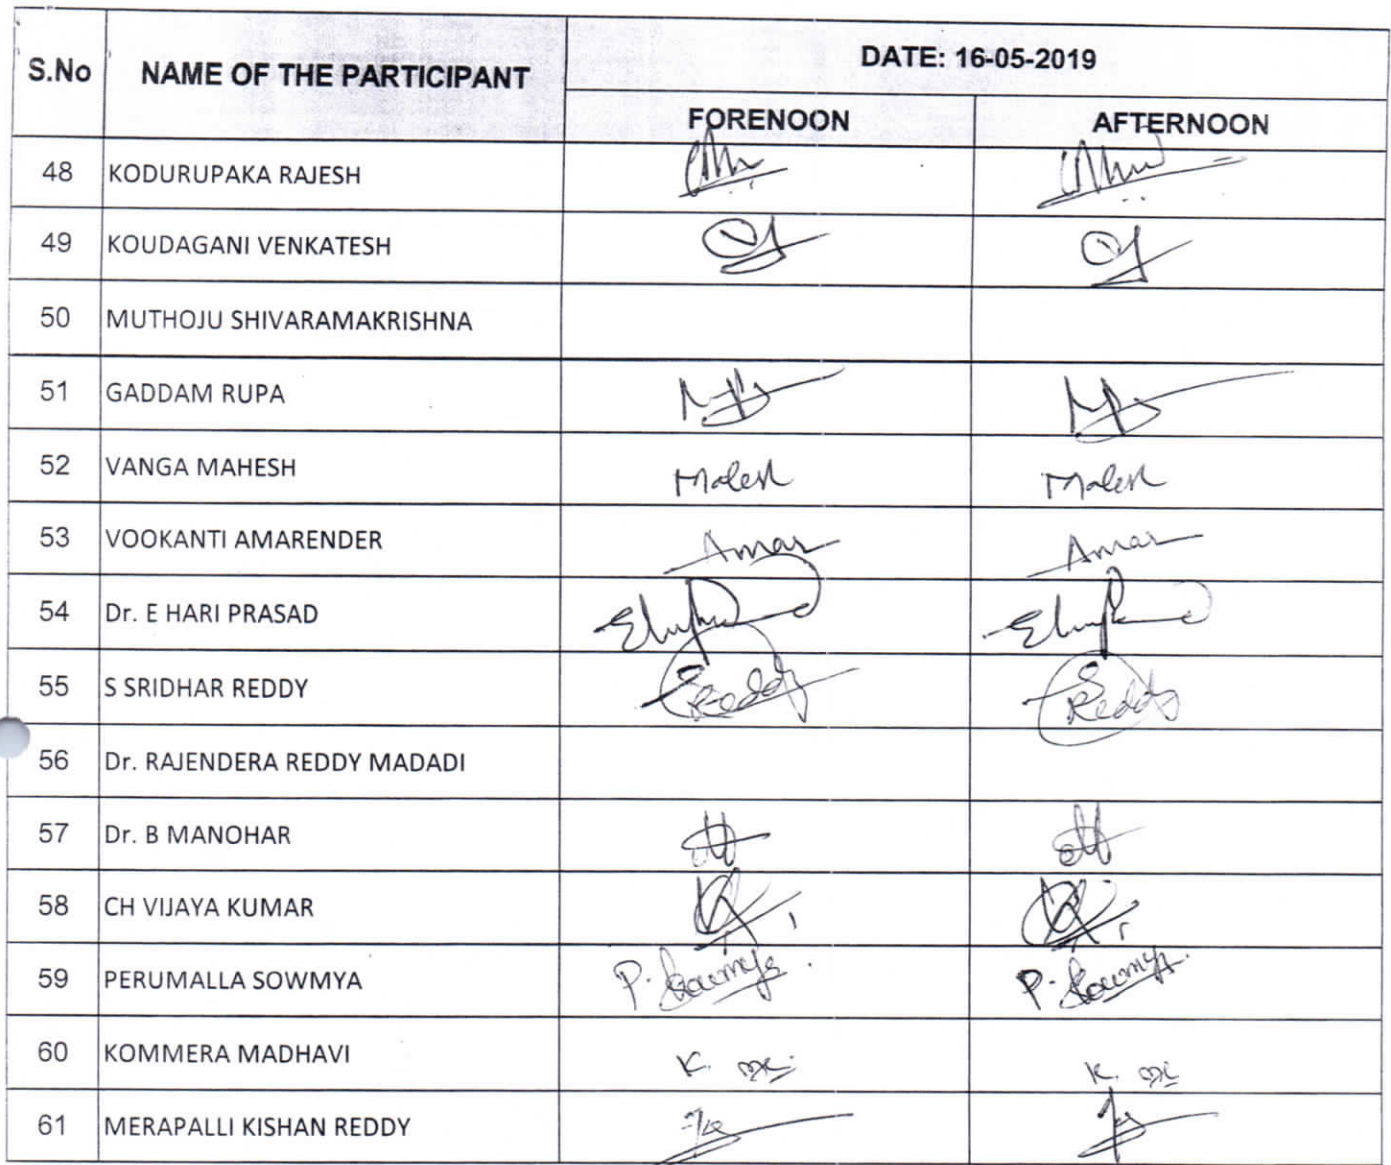 S.No NAME OF THE PARTICIPANT DATE: 16-05-2019
FORENOON AFTERNOON
48 KODURUPAKA RAJESH
49 KOUDAGANI VENKATESH
50 MUTHOJU SHIVARAMAKRISHNA
51 GADDAM RUPA
52 VANGA MAHESH Mahesh Mahesh
53 VOOKANTI AMARENDER Amar Amar
54 Dr. E HARI PRASAD
55 S SRIDHAR REDDY SReddy SReddy
56 Dr. RAJENDERA REDDY MADADI
57 Dr. B MANOHAR
58 CH VIJAYA KUMAR
59 PERUMALLA SOWMYA P. Sowmya P. Sowmya
60 KOMMERA MADHAVI K. K.
61 MERAPALLI KISHAN REDDY